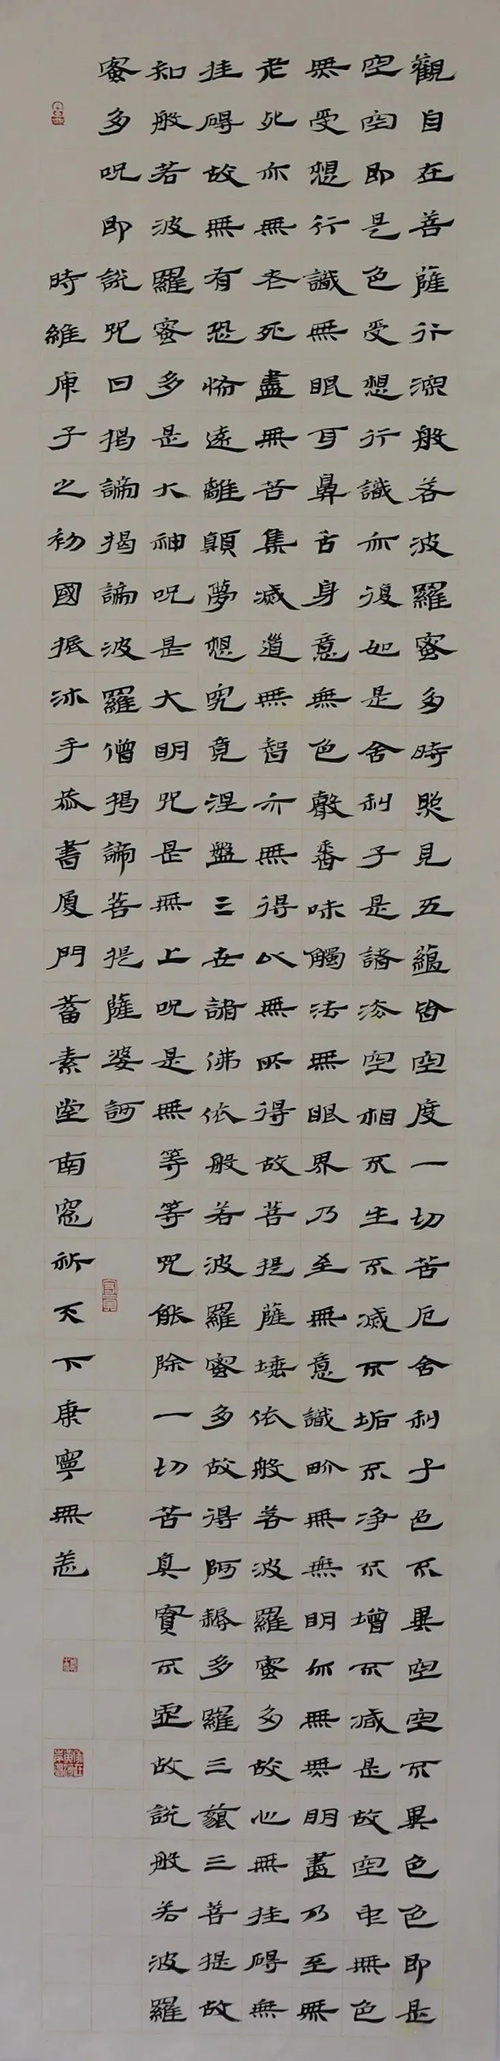 觀自在菩薩行深般若波羅蜜多時照見五蘊皆空度一切苦厄舍利子色不異空空不異色色即是
空空即是色受想行識亦復如是舍利子是諸法空相不生不滅不垢不淨不增不減是故空中無色
無受想行識無眼耳鼻舌身意無色聲香味觸法無眼界乃至無意識界無無明亦無無明盡乃至無
老死亦無老死盡無苦集滅道無智亦無得以無所得故菩提薩埵依般若波羅蜜多故心無挂碍無
挂碍故無有恐怖遠離顛夢想究竟涅盤三世諸佛依般若波羅蜜多故得阿耨多羅三藐三菩提故
知般若波羅蜜多是大神呪是大明咒是無上呪是無等等咒能除一切苦真實不虛故說般若波羅
蜜多呪即說咒曰揭諦揭諦波羅僧揭諦菩提薩婆訶
時維庚子之初國抵沐手恭書廈門蓄素堂南窗祈天下康寧無恙